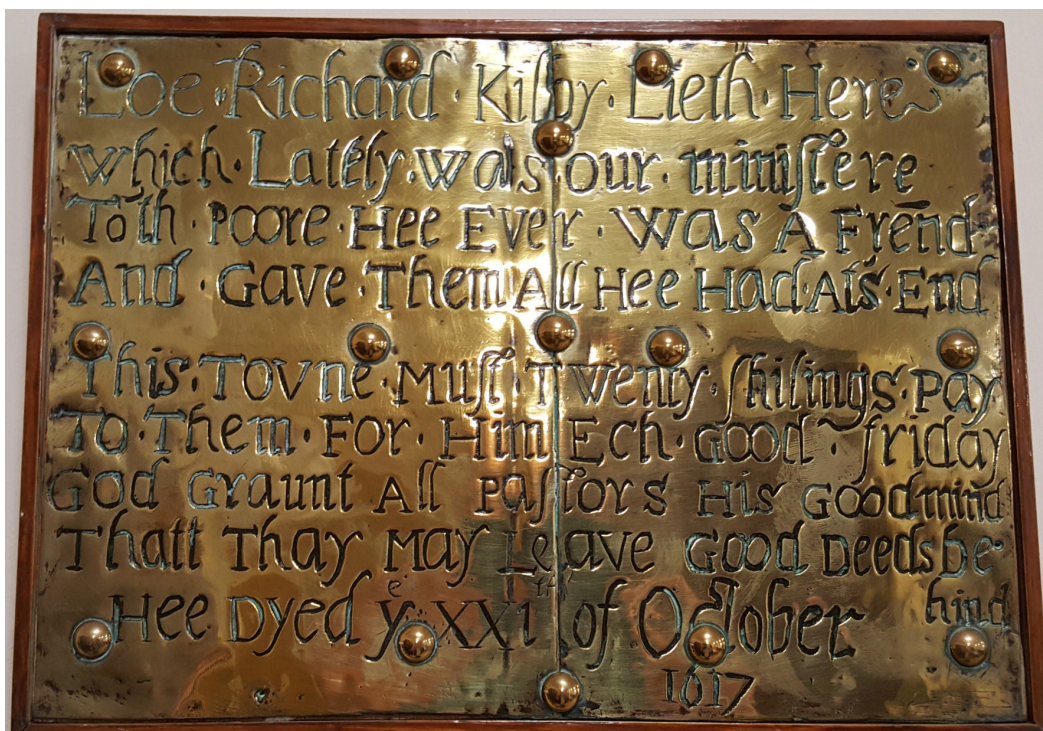 Loe · Richard · Kilby · Lieth · Here
which · Lately · was · our · miniſtere
To'th · Poore · Hee Ever · Was A Frēnd
And · Gave · Them All Hee Had · At's · End
This · Tovne · Muſt · Twenty · ſhilings · Pay
To · Them · For · Him Ech · Good · friday
God Graunt All Paſtors His Good mind
Thatt Thay May Leave Good Deeds be
hind
Hee Dyed yᵉ XXIᵗʰ of October
1617